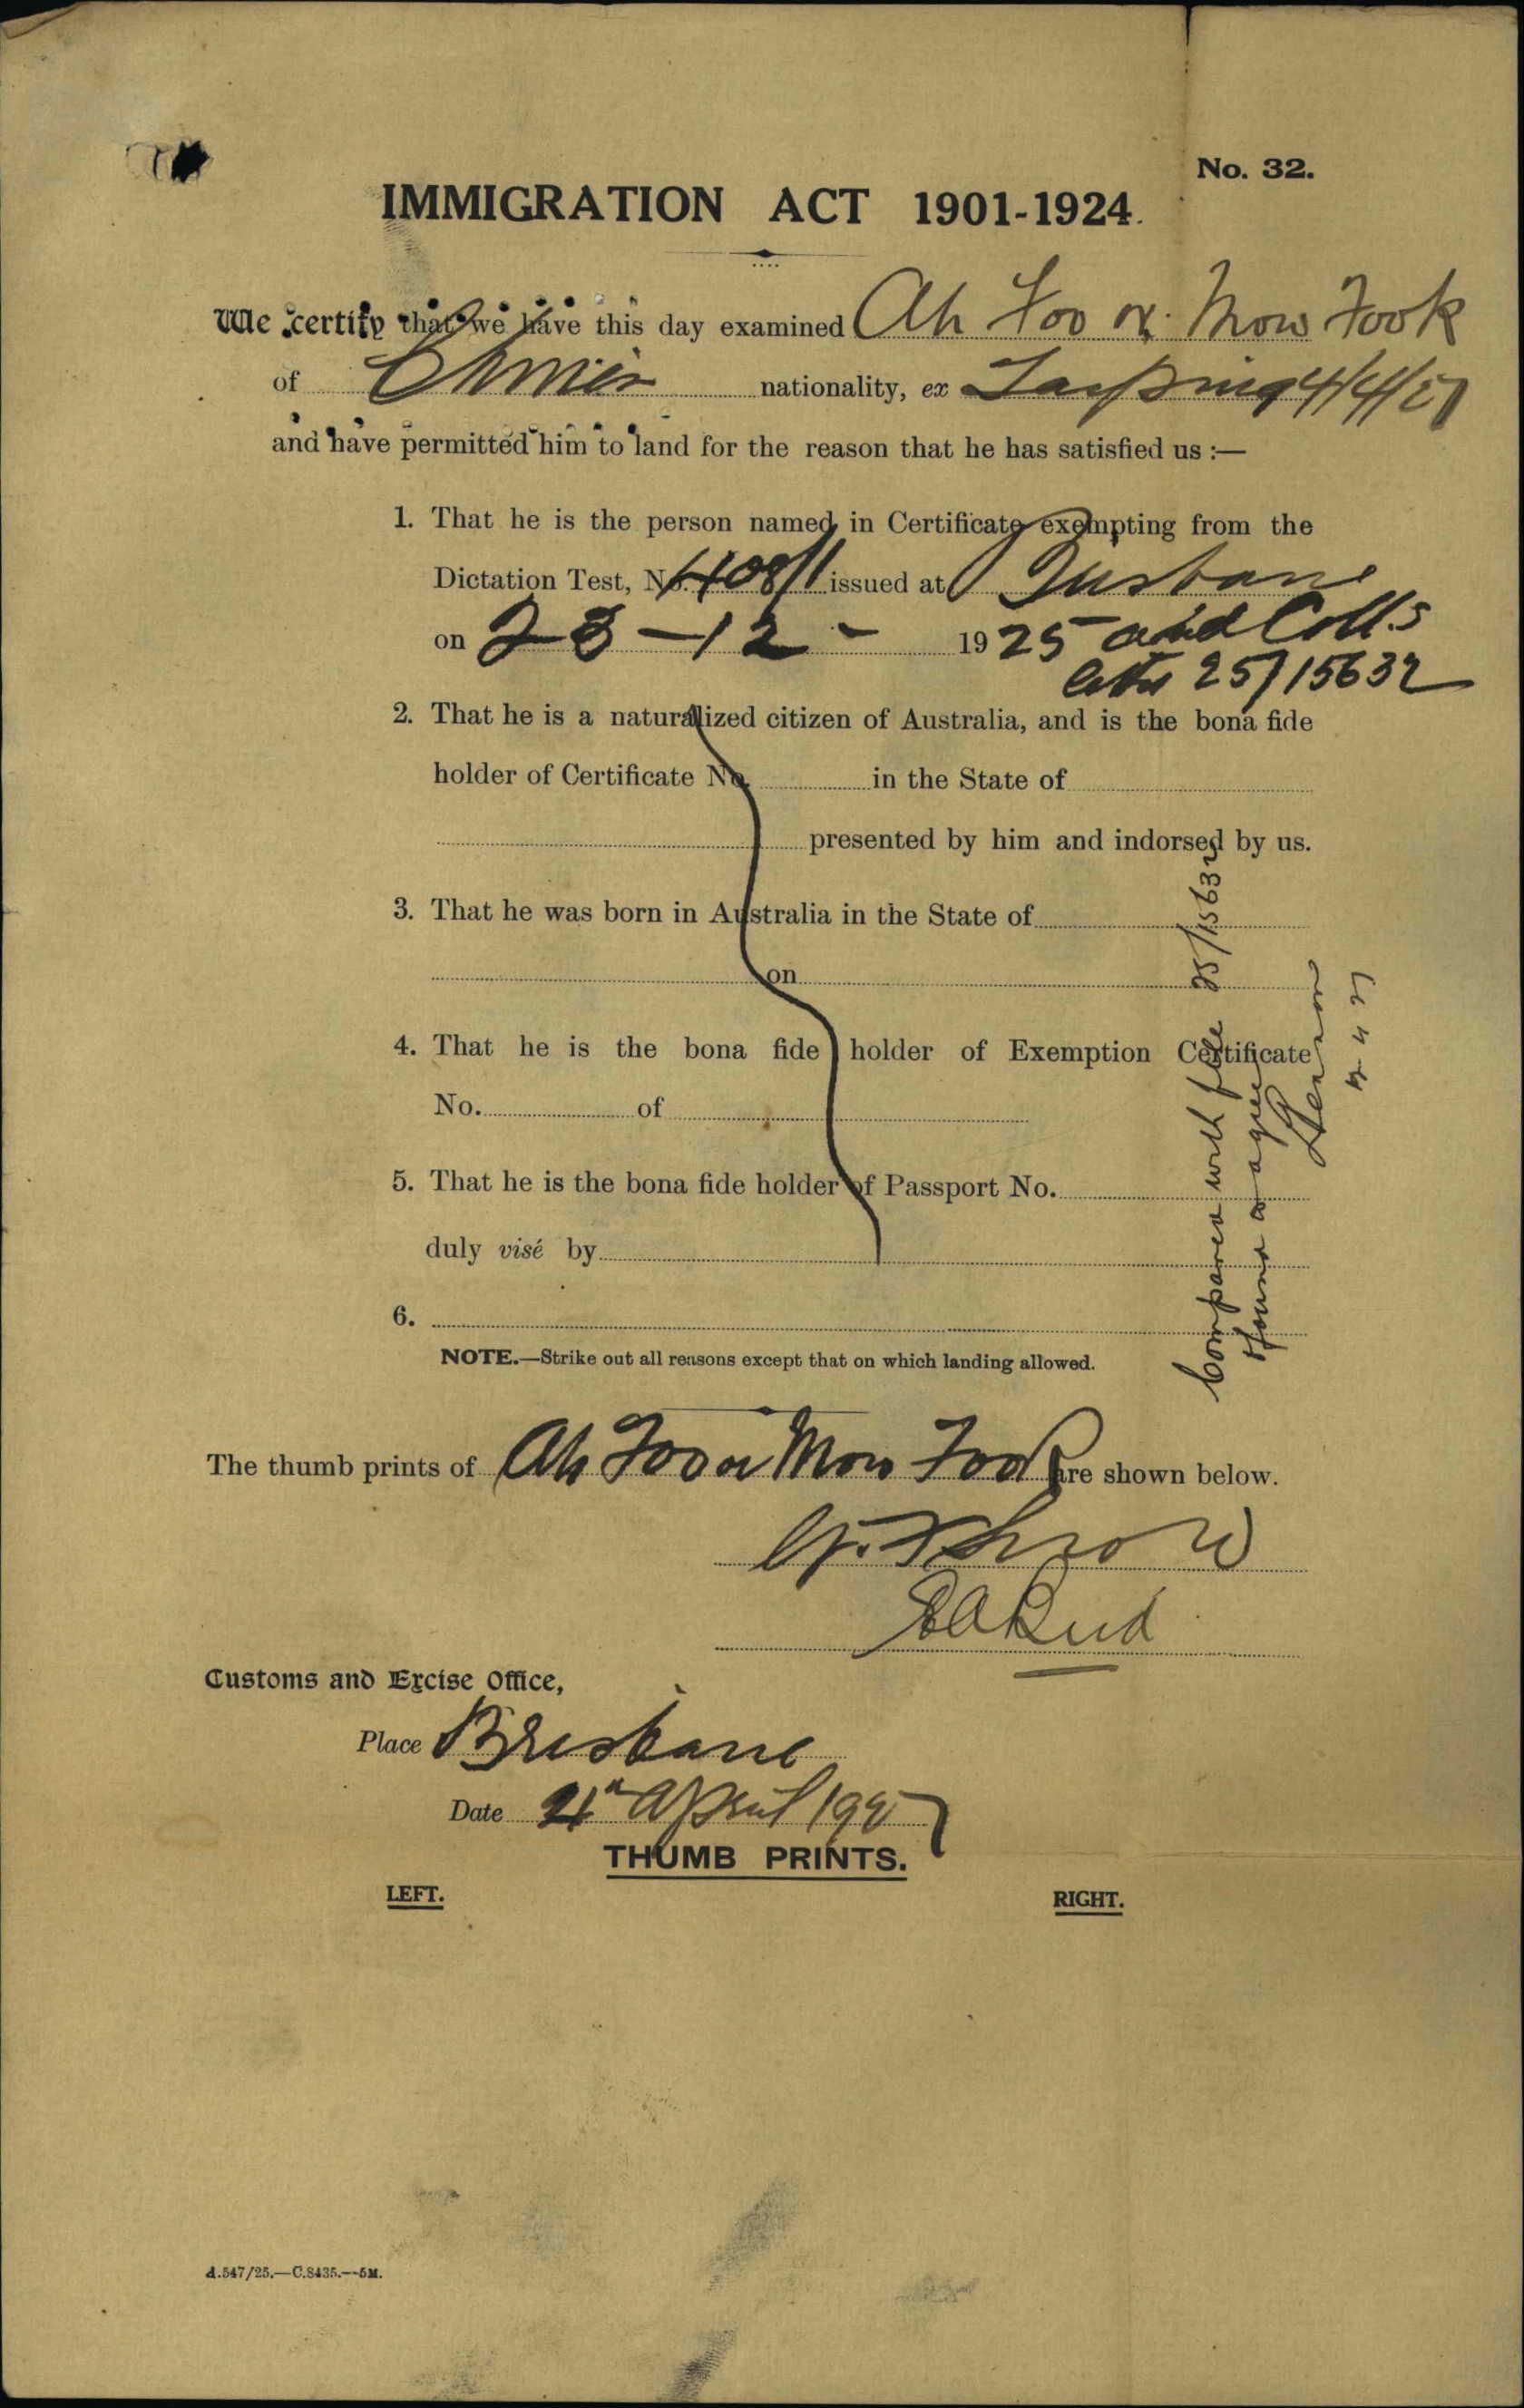 No. 32.
IMMIGRATION ACT 1901-1924.
We certify that we have this day examined Ah Foo or Mow Fook
of Chinese nationality, ex Taiping 4/4/27
and have permitted him to land for the reason that he has satisfied us :—
1. That he is the person named in Certificate exempting from the
Dictation Test, No. 408/1 issued at Brisbane
on 23-12- 1925 and Coll.s
25/15632
2. That he is a naturalized citizen of Australia, and is the bona fide
holder of Certificate No. in the State of
presented by him and indorsed by us.
3. That he was born in Australia in the State of
on
4. That he is the bona fide holder of Exemption Certificate
No. of
5. That he is the bona fide holder of Passport No.
duly visé by
6.
NOTE.—Strike out all reasons except that on which landing allowed.
Compared with file 25/15632
found to agree
The thumb prints of Ah Foo or Mow Fook are shown below.
Customs and Excise Office,
Place Brisbane
Date April 1927
THUMB PRINTS.
LEFT. RIGHT.
A.547/25.—C.8435.—5M.